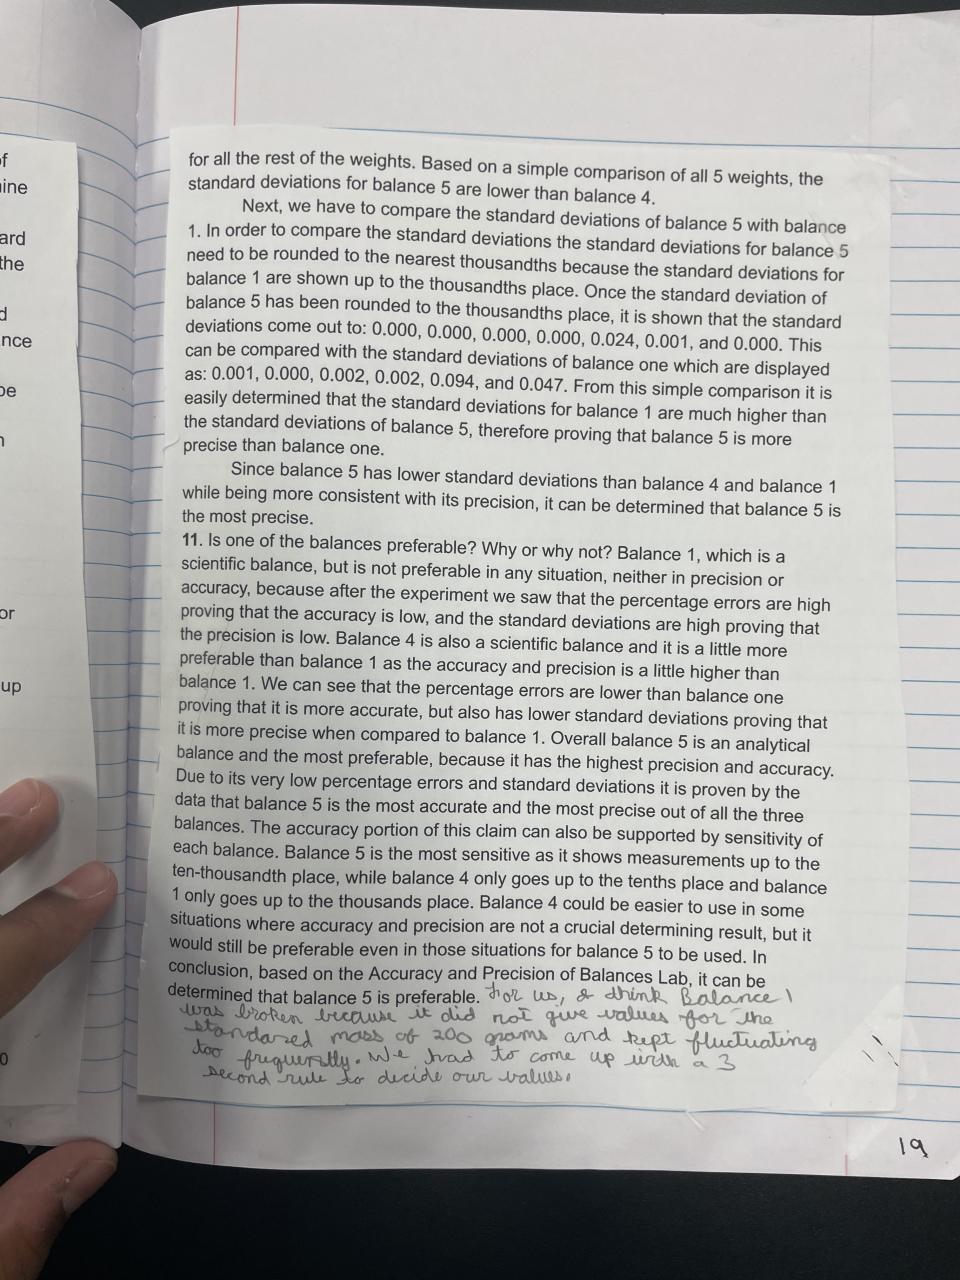 of
ine
ard
the
d
nce
be
n
or
up
0
for all the rest of the weights. Based on a simple comparison of all 5 weights, the
standard deviations for balance 5 are lower than balance 4.
Next, we have to compare the standard deviations of balance 5 with balance
1. In order to compare the standard deviations the standard deviations for balance 5
need to be rounded to the nearest thousandths because the standard deviations for
balance 1 are shown up to the thousandths place. Once the standard deviation of
balance 5 has been rounded to the thousandths place, it is shown that the standard
deviations come out to: 0.000, 0.000, 0.000, 0.000, 0.024, 0.001, and 0.000. This
can be compared with the standard deviations of balance one which are displayed
as: 0.001, 0.000, 0.002, 0.002, 0.094, and 0.047. From this simple comparison it is
easily determined that the standard deviations for balance 1 are much higher than
the standard deviations of balance 5, therefore proving that balance 5 is more
precise than balance one.
Since balance 5 has lower standard deviations than balance 4 and balance 1
while being more consistent with its precision, it can be determined that balance 5 is
the most precise.
11. Is one of the balances preferable? Why or why not? Balance 1, which is a
scientific balance, but is not preferable in any situation, neither in precision or
accuracy, because after the experiment we saw that the percentage errors are high
proving that the accuracy is low, and the standard deviations are high proving that
the precision is low. Balance 4 is also a scientific balance and it is a little more
preferable than balance 1 as the accuracy and precision is a little higher than
balance 1. We can see that the percentage errors are lower than balance one
proving that it is more accurate, but also has lower standard deviations proving that
it is more precise when compared to balance 1. Overall balance 5 is an analytical
balance and the most preferable, because it has the highest precision and accuracy.
Due to its very low percentage errors and standard deviations it is proven by the
data that balance 5 is the most accurate and the most precise out of all the three
balances. The accuracy portion of this claim can also be supported by sensitivity of
each balance. Balance 5 is the most sensitive as it shows measurements up to the
ten-thousandth place, while balance 4 only goes up to the tenths place and balance
1 only goes up to the thousands place. Balance 4 could be easier to use in some
situations where accuracy and precision are not a crucial determining result, but it
would still be preferable even in those situations for balance 5 to be used. In
conclusion, based on the Accuracy and Precision of Balances Lab, it can be
determined that balance 5 is preferable. For us, I think Balance 1
was broken because it did not give values for the
standared mass of 200 grams and kept fluctuating
too frequently. We had to come up with a 3
second rule to decide our values.
19